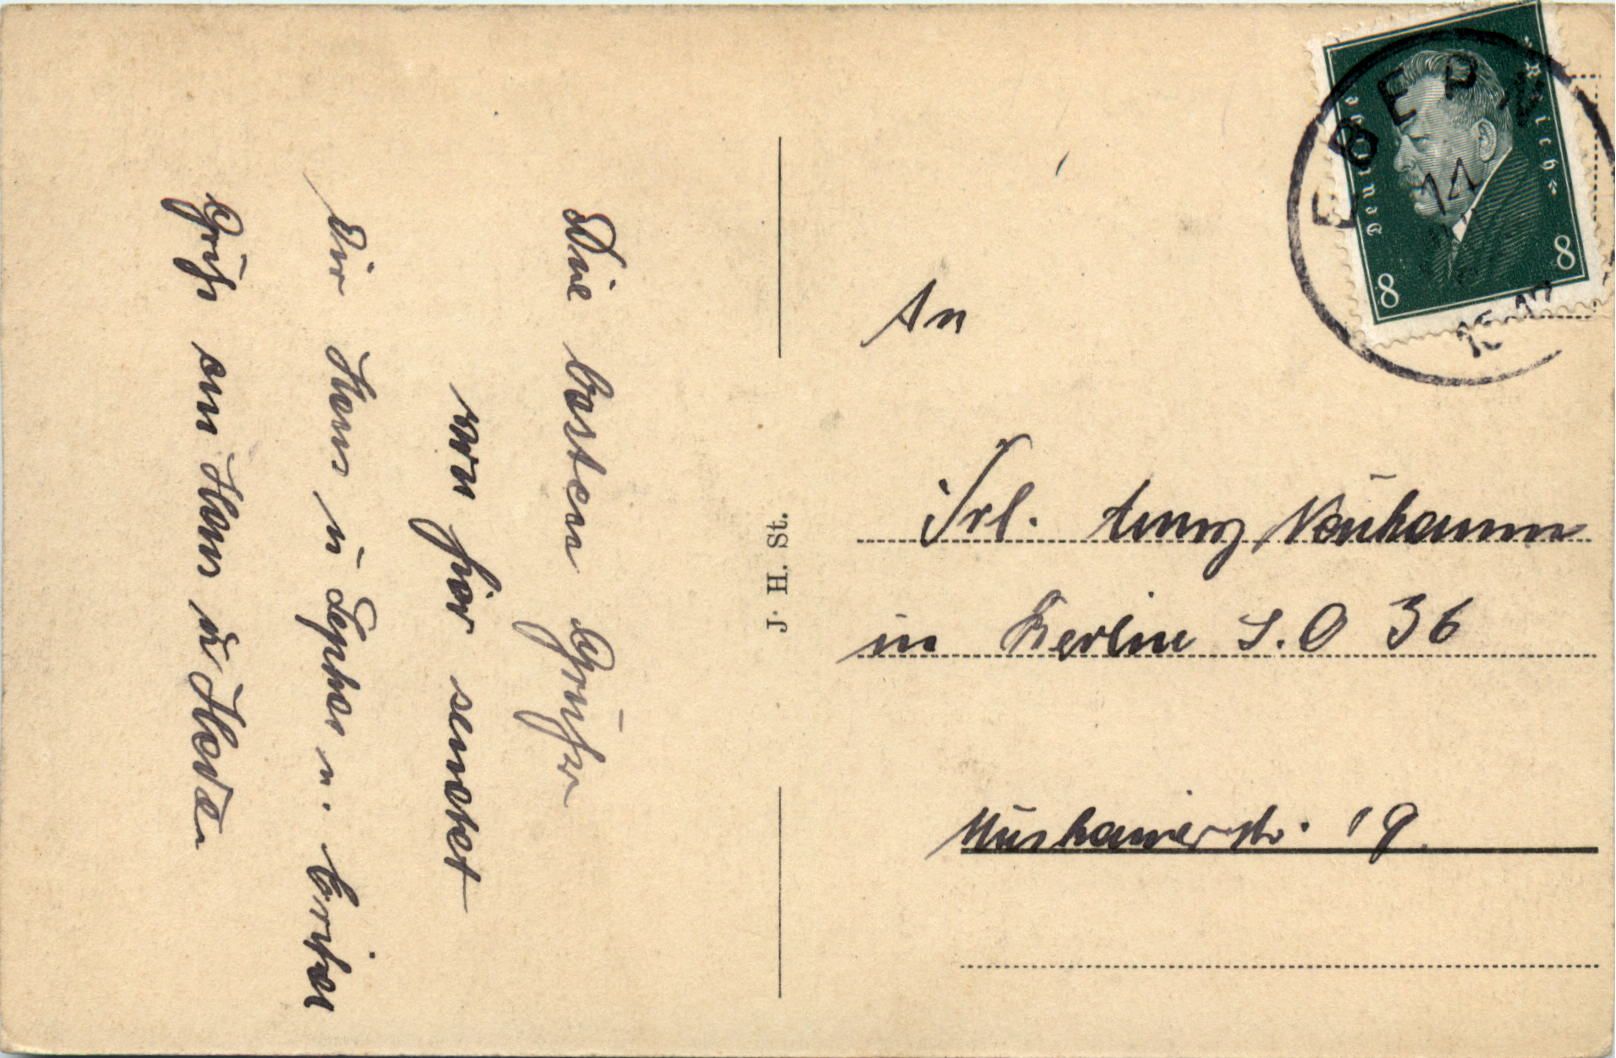 Die besten Grüße
von hier sendet
Dir Hans u
Gruß an Hans u
J. H. St.
EBERN
14
Deutsches Reich
8 8
An
Frl. Anny Neuhann
in Berlin S.O 36
19